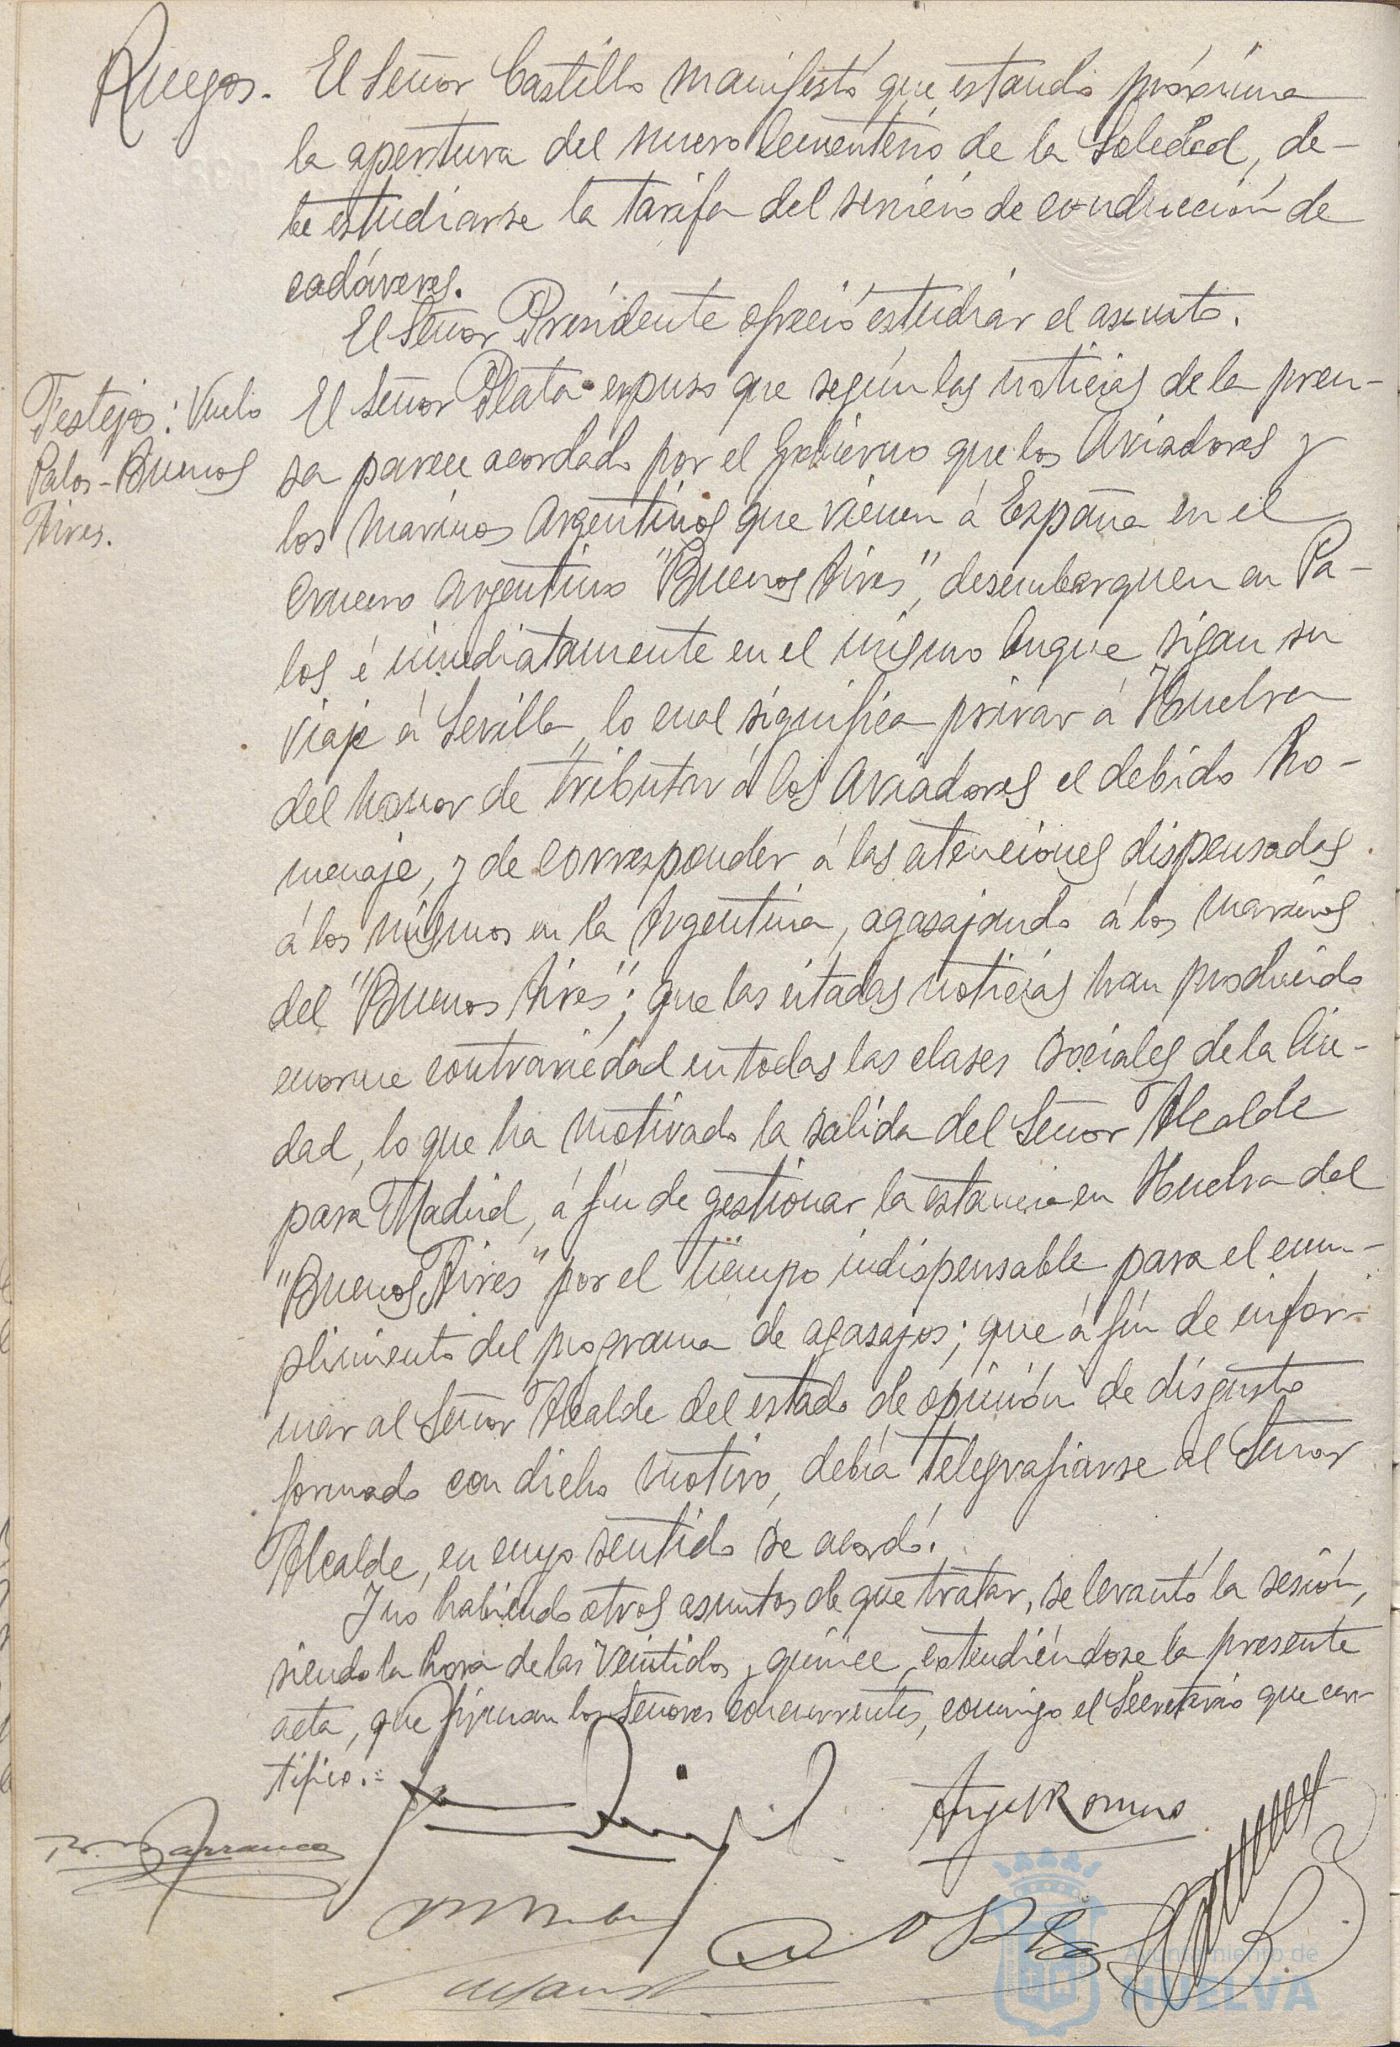 Ruegos. El Señor Castillo manifestó que estando próxima
la apertura del nuevo Cementerio de la Soledad, de-
be estudiarse la tarifa del servicio de conducción de
cadáveres.
El Señor Presidente ofreció estudiar el asunto.
Festejos: Vuelo
Palos-Buenos
Aires.
El Señor Plata expuso que según las noticias de la pren-
sa parece acordado por el Gobierno que los Aviadores y
los Marinos Argentinos que vienen á España en el
crucero Argentino "Buenos Aires", desembarquen en Pa-
los é inmediatamente en el mismo buque sigan su
viaje á Sevilla, lo cual significa privar á Huelva
del honor de tributar á los Aviadores el debido ho-
menaje, y de corresponder á las atenciones dispensadas
á los mismos en la Argentina, agasajando á los marinos
del "Buenos Aires"; que las citadas noticias han producido
enorme contrariedad en todas las clases sociales de la Ciu-
dad, lo que ha motivado la salida del Señor Alcalde
para Madrid, á fín de gestionar la estancia en Huelva del
"Buenos Aires" por el tiempo indispensable para el cum-
plimiento del programa de agasajos; que á fín de infor-
mar al Señor Alcalde del estado de opinión de disgusto
formado con dicho motivo, debía telegrafiarse al Señor
Alcalde, en cuyo sentido se acordó.
Y no habiendo otros asuntos de que tratar, se levantó la sesión,
siendo la hora de las veintidos y quince, extendiéndose la presente
acta, que firman los Señores concurrentes, conmigo el Secretario que cer-
tifico.=
Barranco
Angel Romero
Ayuntamiento de
HUELVA